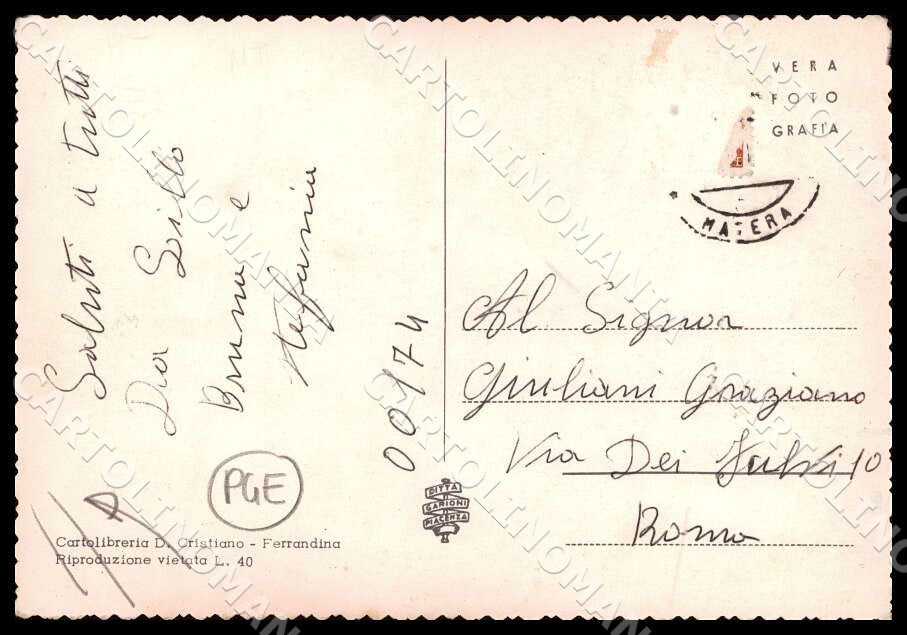 Saluti a tutti
Da Lillo
Bruna e
Stefania
00174
PGE
Cartolibreria D. Cristiano - Ferrandina
Riproduzione vietata L. 40
DITTA
GARIONI
PIACENZA
VERA
FOTO
GRAFIA
MATERA
Al Signor
Giuliani Graziano
Via Dei Fulvi 10
Roma
CARTOLINOMANIA